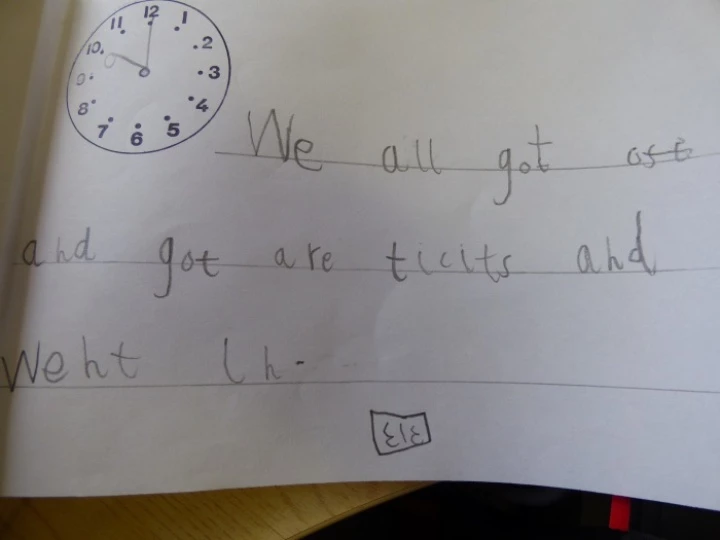 12
11 1
10 2
9 3
8 4
7 5
6
We all got ost
and got are ticits and
Went in.